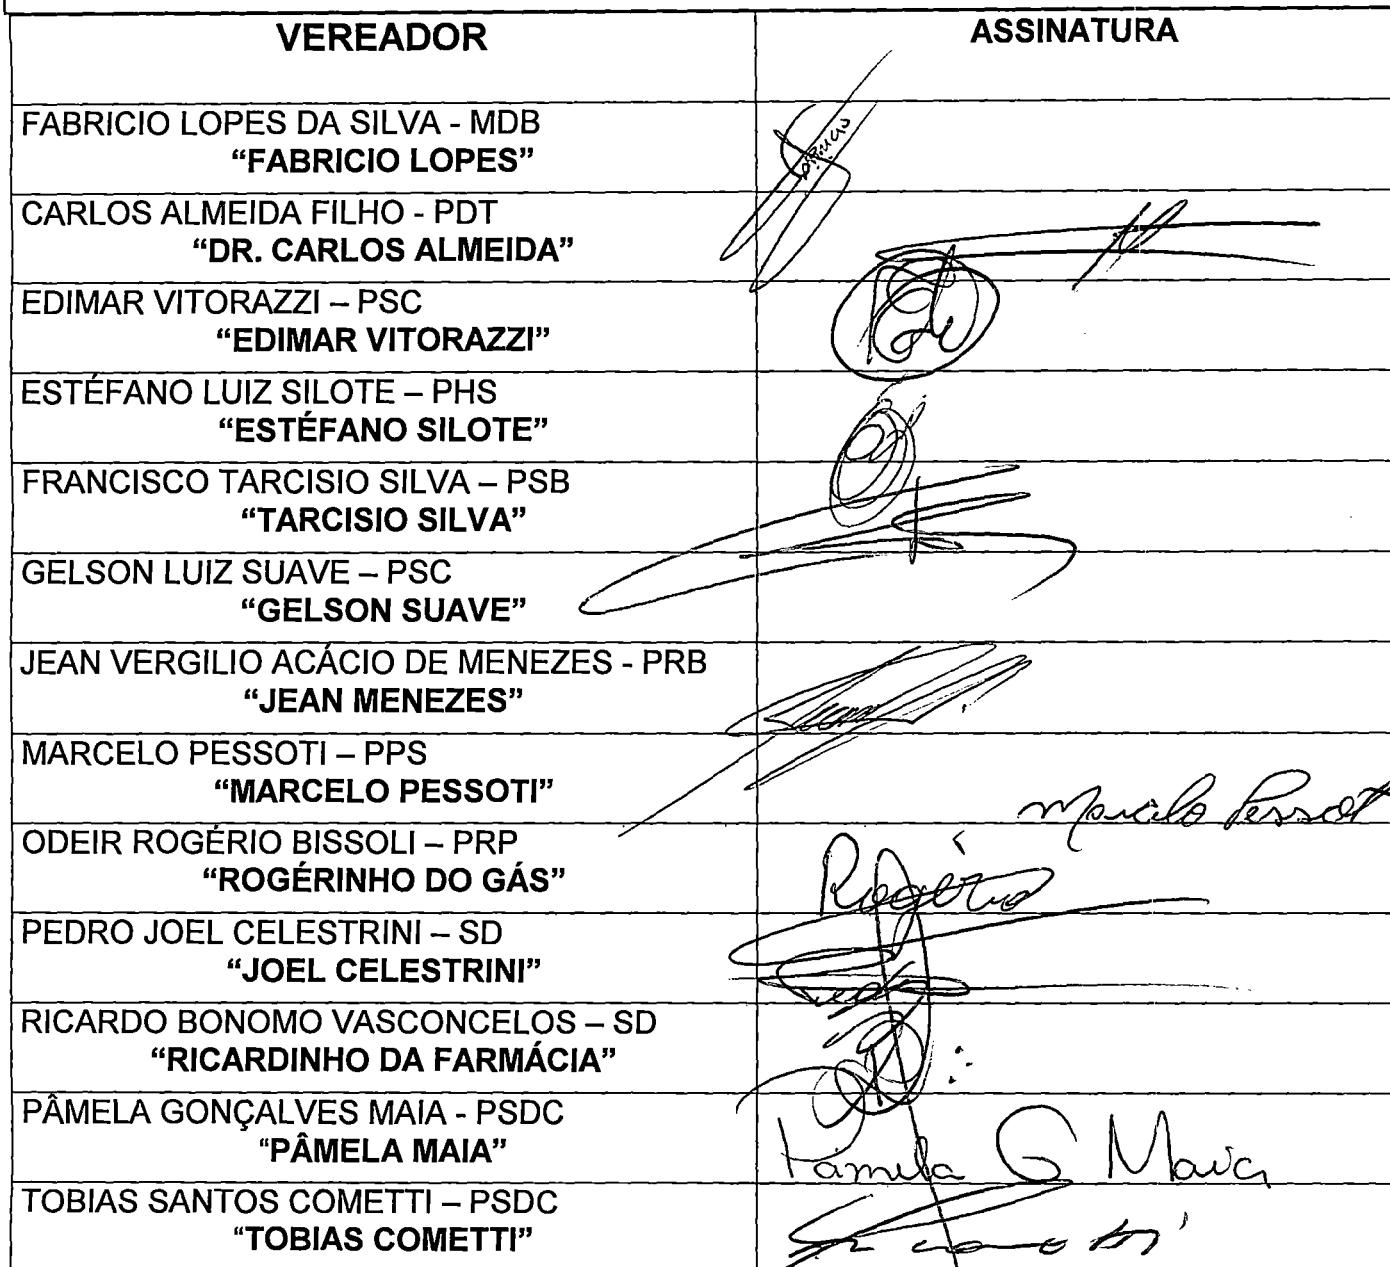 VEREADOR ASSINATURA
FABRICIO LOPES DA SILVA - MDB
“FABRICIO LOPES”
CARLOS ALMEIDA FILHO - PDT
“DR. CARLOS ALMEIDA”
EDIMAR VITORAZZI – PSC
“EDIMAR VITORAZZI”
ESTÉFANO LUIZ SILOTE – PHS
“ESTÉFANO SILOTE”
FRANCISCO TARCISIO SILVA – PSB
“TARCISIO SILVA”
GELSON LUIZ SUAVE – PSC
“GELSON SUAVE”
JEAN VERGILIO ACÁCIO DE MENEZES - PRB
“JEAN MENEZES”
MARCELO PESSOTI – PPS
“MARCELO PESSOTI”
Marcelo Pessoti
ODEIR ROGÉRIO BISSOLI – PRP
“ROGÉRINHO DO GÁS”
Rogério
PEDRO JOEL CELESTRINI – SD
“JOEL CELESTRINI”
RICARDO BONOMO VASCONCELOS – SD
“RICARDINHO DA FARMÁCIA”
PÂMELA GONÇALVES MAIA - PSDC
“PÂMELA MAIA”
Pamela G Maia
TOBIAS SANTOS COMETTI – PSDC
“TOBIAS COMETTI”